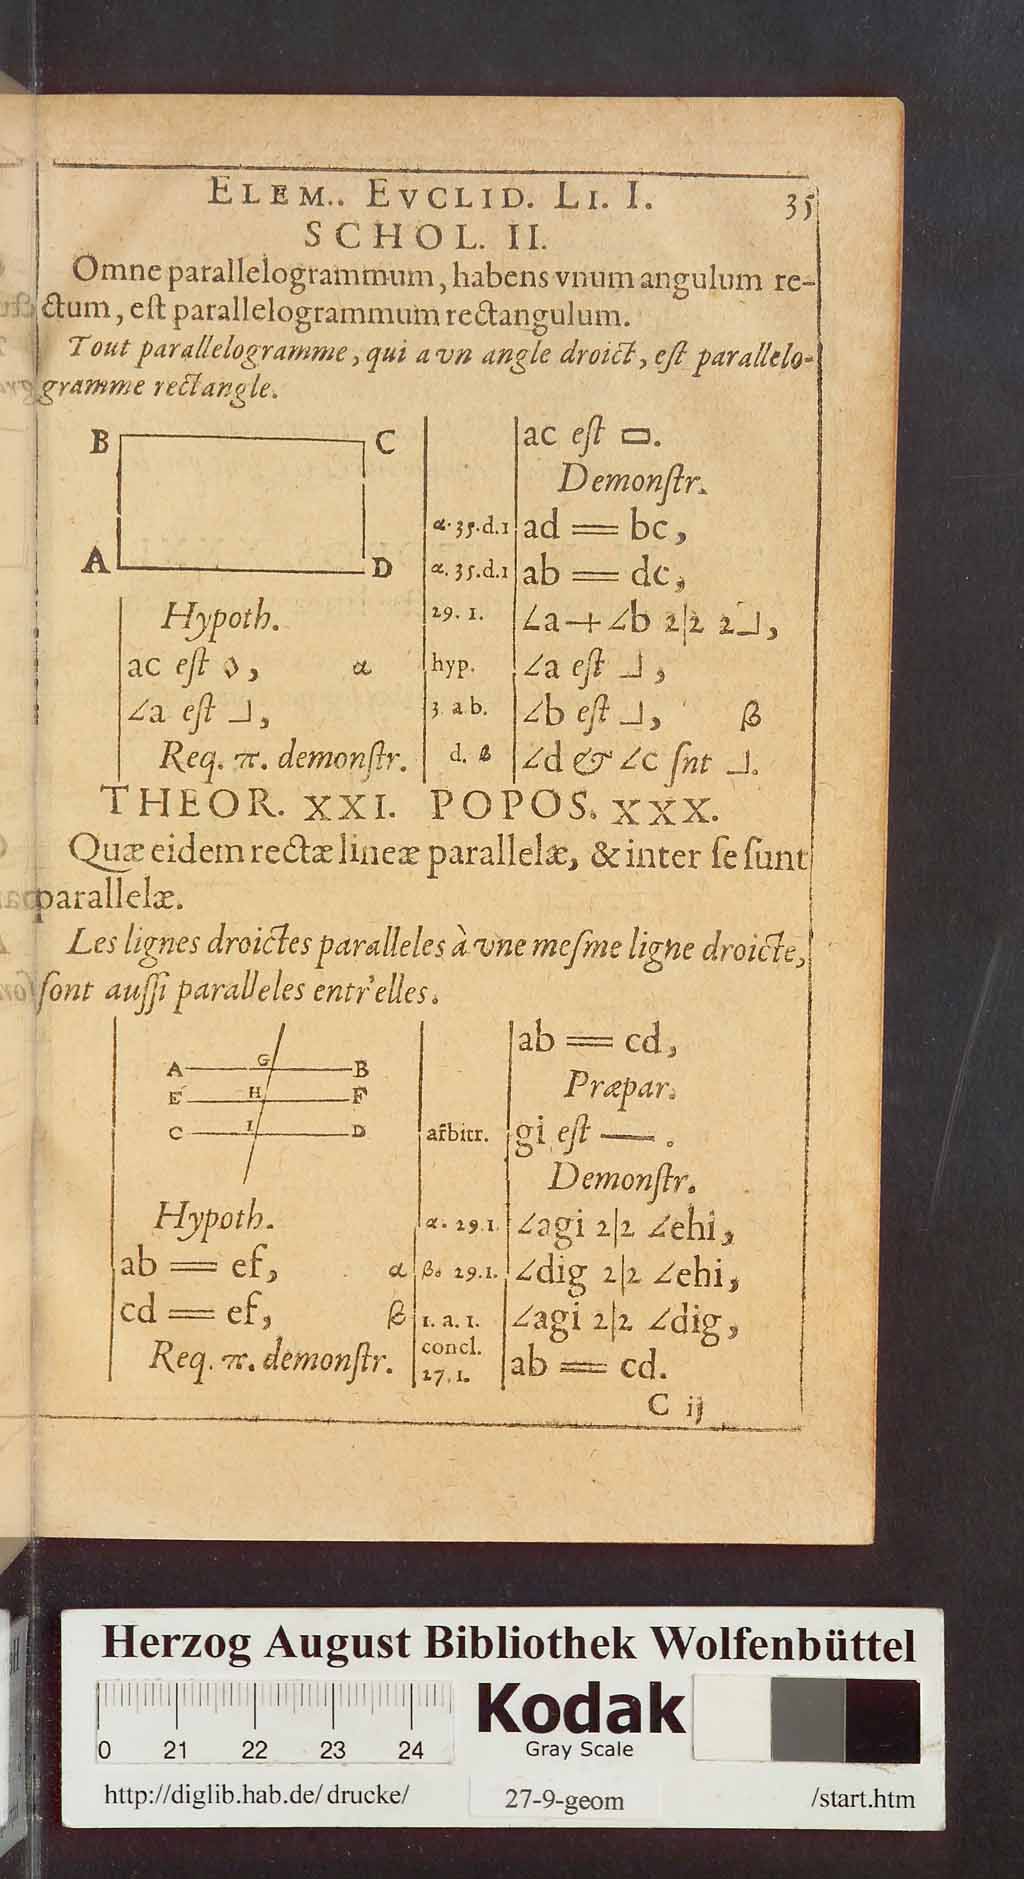 ELEM.. EVCLID. LI. I. 35
SCHOL. II.
Omne parallelogrammum, habens vnum angulum re-
ctum, est parallelogrammum rectangulum.
Tout parallelogramme, qui a vn angle droict, est parallelo-
gramme rectangle.
B C
A D
Hypoth.
ac est ◊, α
∠a est ⅃,
Req. π. demonstr.
ac est ▭.
Demonstr.
α. 35. d. 1 ad == bc,
α. 35. d. 1 ab == dc,
29. 1. ∠a + ∠b 2|2 2⅃,
hyp. ∠a est ⅃,
3. a b. ∠b est ⅃, β
d. β ∠d & ∠c snt ⅃.
THEOR. XXI. POPOS. XXX.
Quæ eidem rectæ lineæ parallelæ, & inter se sunt
parallelæ.
Les lignes droictes paralleles à vne mesme ligne droicte,
sont aussi paralleles entr'elles.
A G B
E H F
C I D
Hypoth.
ab == ef, α
cd == ef, β
Req. π. demonstr.
ab == cd,
Præpar.
arbitr. gi est —.
Demonstr.
α. 29. 1. ∠agi 2|2 ∠ehi,
β. 29. 1. ∠dig 2|2 ∠ehi,
1. a. 1. ∠agi 2|2 ∠dig,
concl.
27. 1. ab == cd.
C ij
Herzog August Bibliothek Wolfenbüttel
Kodak
Gray Scale
0 21 22 23 24
http://diglib.hab.de/ drucke/ 27-9-geom /start.htm